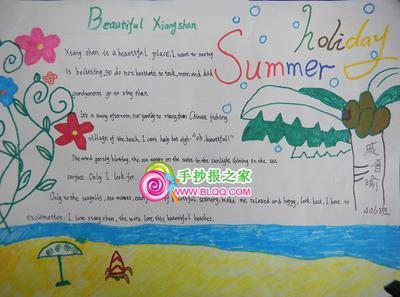 Beautiful Xiangshan
Summer
holiday
Xiang shan is a beautiful place, I want to
is so do not hesitate to talk, mom and dad
grandparents go to xing shan.
It's a sunny afternoon, our family to xiangshan Chinese fishing
village of the beach, I can't help but sigh: "oh, beautiful!"
The wind gently blowing, the sea water on the in the sunlight shining on the sea
surface. Only I look far.
Only to the seagulls, sea water, beautiful scenery, make me relaxed and happy, look back, I have to
exclamation: I love xiang shan, the more love this beautiful beaches.
手抄报之家
WWW.BLQQ.COM
406班